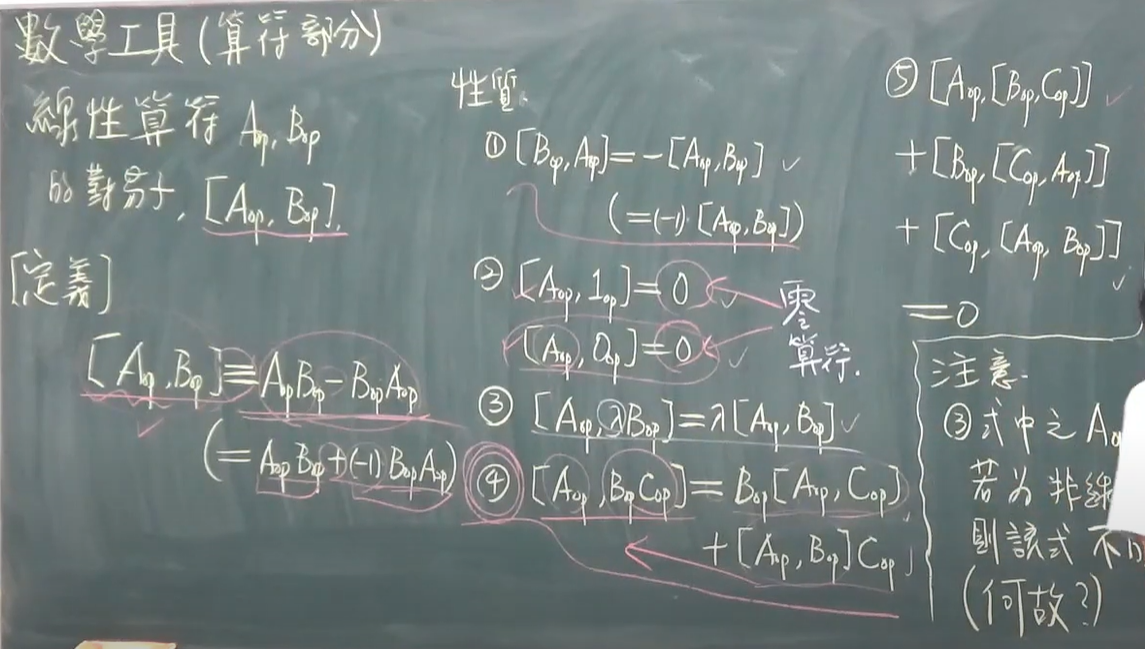 數學工具(算符部分)
線性算符 Aop, Bop
的對易子, [Aop, Bop],
[定義]
[Aop, Bop] ≡ AopBop - BopAop
(= AopBop + (-1) BopAop)
性質
① [Bop, Aop] = -[Aop, Bop]
(= (-1)·[Aop, Bop])
② [Aop, 1op] = 0
[Aop, 0op] = 0
零
算符.
③ [Aop, λBop] = λ[Aop, Bop]
④ [Aop, BopCop] = Bop[Aop, Cop]
+ [Aop, Bop]Cop
⑤ [Aop, [Bop, Cop]]
+ [Bop, [Cop, Aop]]
+ [Cop, [Aop, Bop]]
= 0
注意
③式中之 A
若为非線
則該式不
(何故?)